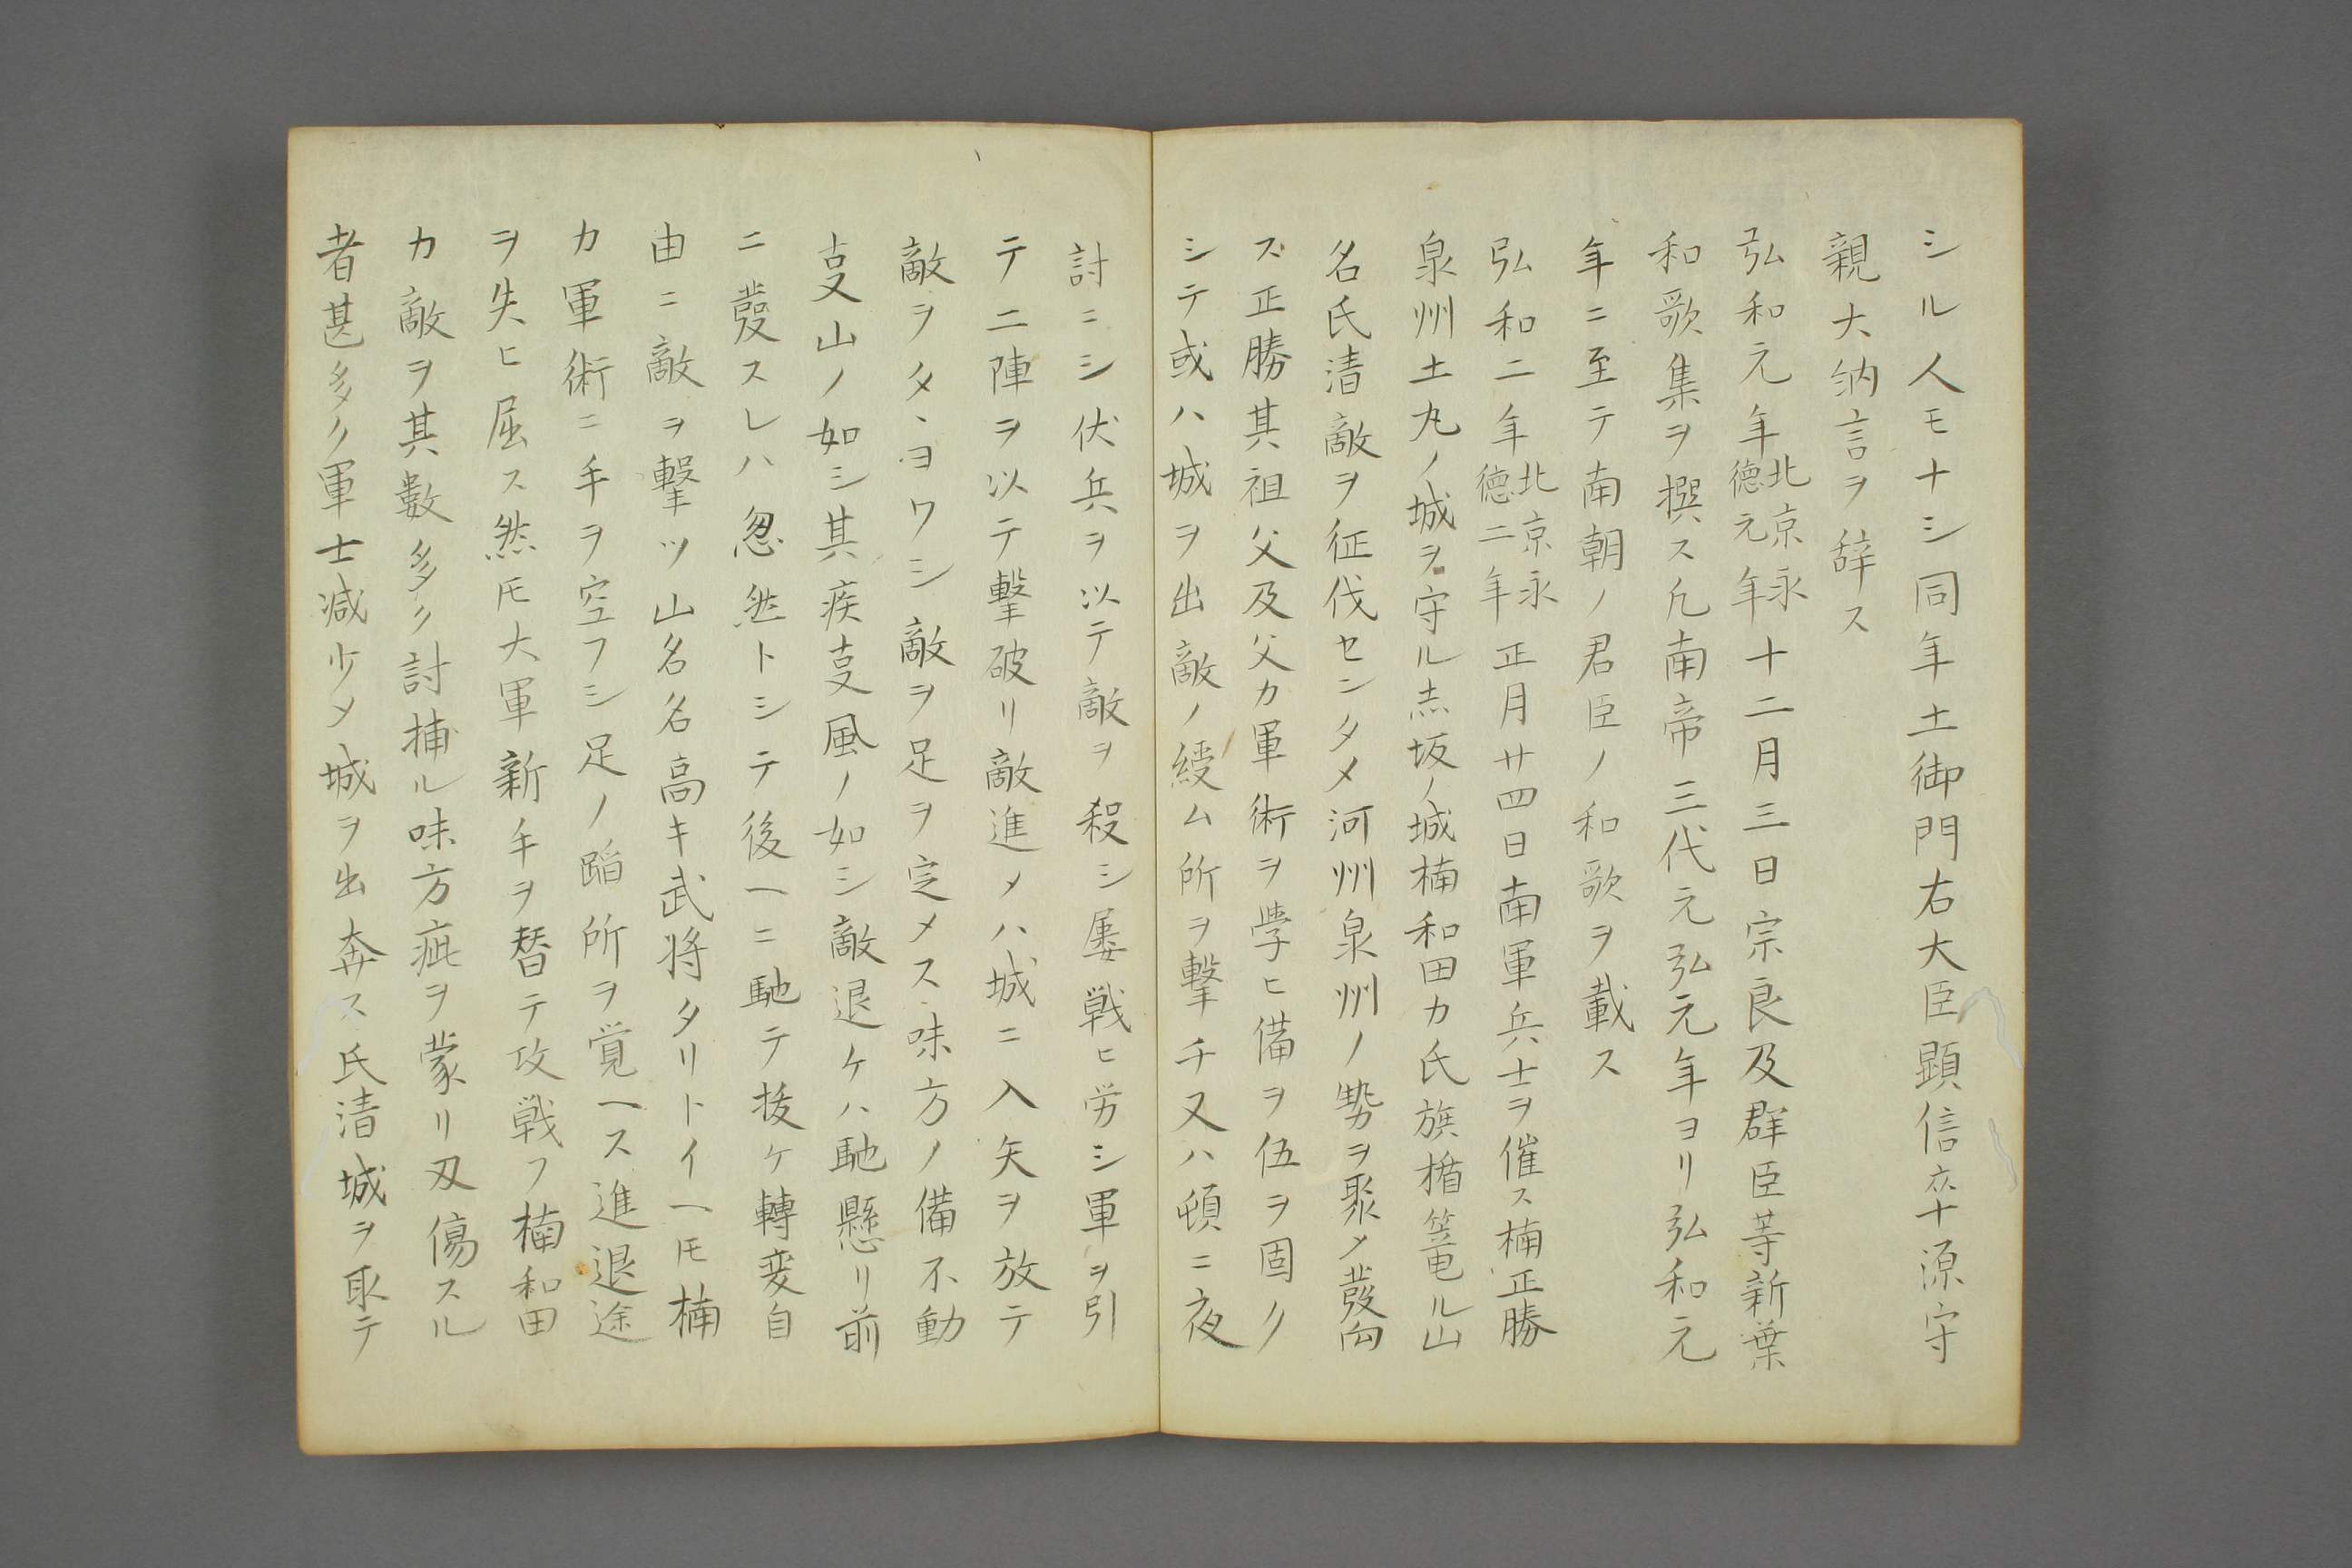 シル人モナシ同年土御門右大臣顕信卒源守
親大納言ヲ辞ス
弘和元年北京永徳元年十二月三日宗良及群臣等新葉
和歌集ヲ撰ス凢南帝三代元弘元年ヨリ弘和元
年ニ至テ南朝ノ君臣ノ和歌ヲ載ス
弘和二年北京永徳二年正月廿四日南軍兵士ヲ催ス楠正勝
泉州土丸ノ城ヲ守ル志坂ノ城楠和田カ氏族楯篭ル山
名氏清敵ヲ征伐センタメ河州泉州ノ勢ヲ聚メ發向
ズ正勝其祖父及父カ軍術ヲ学ヒ備ヲ伍ヲ固ク
シテ或ハ城ヲ出敵ノ緩ム所ヲ撃チ又ハ頓ニ夜
討ニシ伏兵ヲ以テ敵ヲ殺シ屡戦ヒ労シ軍ヲ引
テ二陣ヲ以テ撃破リ敵進メハ城ニ入矢ヲ放テ
敵ヲタヽヨワシ敵ヲ足ヲ定メス味方ノ備不動
叓山ノ如シ其疾叓風ノ如シ敵退ケハ馳懸リ前
ニ發スレハ忽然トシテ後ヘニ馳テ抜ケ轉変自
由ニ敵ヲ撃ツ山名名高キ武将タリトイヘ𪜈楠
カ軍術ニ手ヲ空フシ足ノ蹈所ヲ覚ヘス進退途
ヲ失ヒ屈ス然𪜈大軍新手ヲ替テ攻戦フ楠和田
カ敵ヲ其數多ク討捕ル味方疵ヲ蒙リ刄傷スル
者甚多ク軍士减少メ城ヲ出奔ス氏清城ヲ取テ